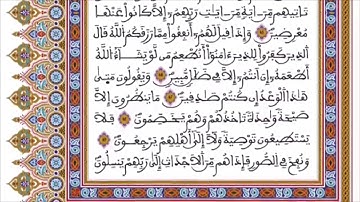 تَاتِيهِم مِّنَ اٰيَةٍ مِّنَ اٰيَٰتِ رَبِّهِمُۥٓ إِلَّا كَانُواْ عَنْهَا
مُعْرِضِينَ وَإِذَا قِيلَ لَهُمُۥٓ أَنفِقُواْ مِمَّا رَزَقَكُمُ اللَّهُ قَالَ
الَّذِينَ كَفَرُواْ لِلَّذِينَ ءَامَنُوٓاْ أَنُطْعِمُ مَن لَّوْ يَشَآءُ اللَّهُ
أَطْعَمَهُۥٓ إِنَ اَنتُمُۥٓ إِلَّا فِي ضَلَٰلٍ مُّبِينٍ وَيَقُولُونَ مَتَىٰ
هَٰذَا الْوَعْدُ إِن كُنتُمْ صَٰدِقِينَ مَا يَنظُرُونَ إِلَّا
صَيْحَةً وَٰحِدَةً تَاخُذُهُمْ وَهُمْ يَخَصِّمُونَ فَلَا
يَسْتَطِيعُونَ تَوْصِيَةً وَلَآ إِلَىٰٓ أَهْلِهِمْ يَرْجِعُونَ
وَنُفِخَ فِي الصُّورِ فَإِذَا هُم مِّنَ الَاجْدَاثِ إِلَىٰ رَبِّهِمْ يَنسِلُونَ